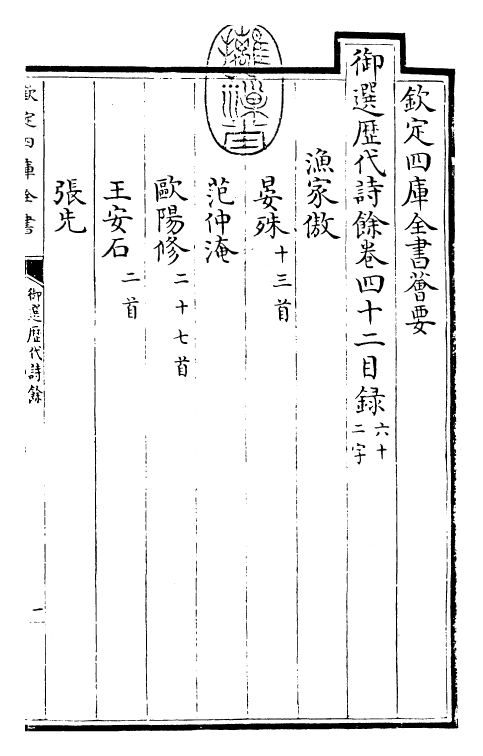 欽定四庫全書薈要
御選歷代詩餘卷四十二目録六十二字
漁家傲
晏殊十三首
范仲淹
歐陽修二十七首
王安石二首
張先
欽定四庫全書
御選歷代詩餘
一